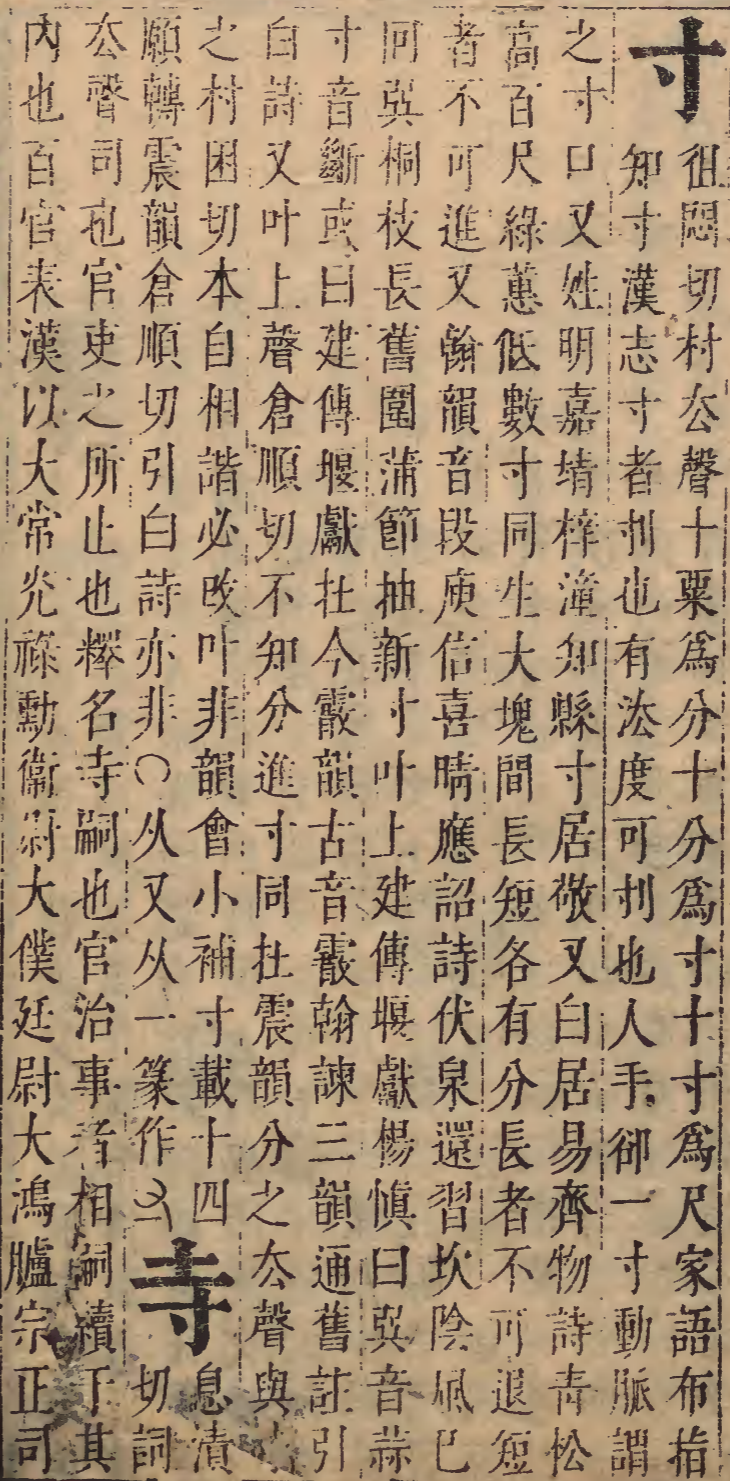 寸
徂悶切村去聲十粟爲分十分爲寸十寸爲尺家語布指
知寸漢志寸者忖也有法度可忖也人手卻一寸動脈謂
之寸口又姓明嘉靖梓潼知縣寸居敬又白居易齊物詩青松
高百尺綠蕙低數寸同生大塊間長短各有分長者不可退短
者不可進又翰韻音段庾信喜晴應詔詩伏泉還習坎陰風已
回巽桐枝長舊圍蒲節抽新寸叶上建傳堰獻楊愼曰巽音蒜
寸音斷或曰建傳堰獻在今霰韻古音霰翰諫三韻通舊註引
白詩又叶上聲倉順切不知分進寸同在震韻分之去聲與
之村困切本自相諧必改叶非韻會小補寸載十四
願轉震韻倉順切引白詩亦非○从又从一篆作
寺
息漬
切詞
去聲司也官吏之所止也釋名寺嗣也官治事者相嗣續于其
內也百官表漢以大常光祿勳衞尉大僕廷尉大鴻臚宗正司